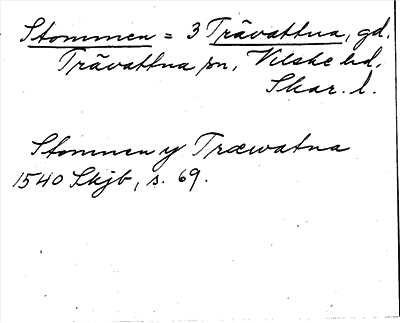 Stommen = 3 Trävattna, gd.
Trävattna sn, Vilske hd.
Skar. l.
Stommen y Træwatna
1540 Skjb, s. 69.